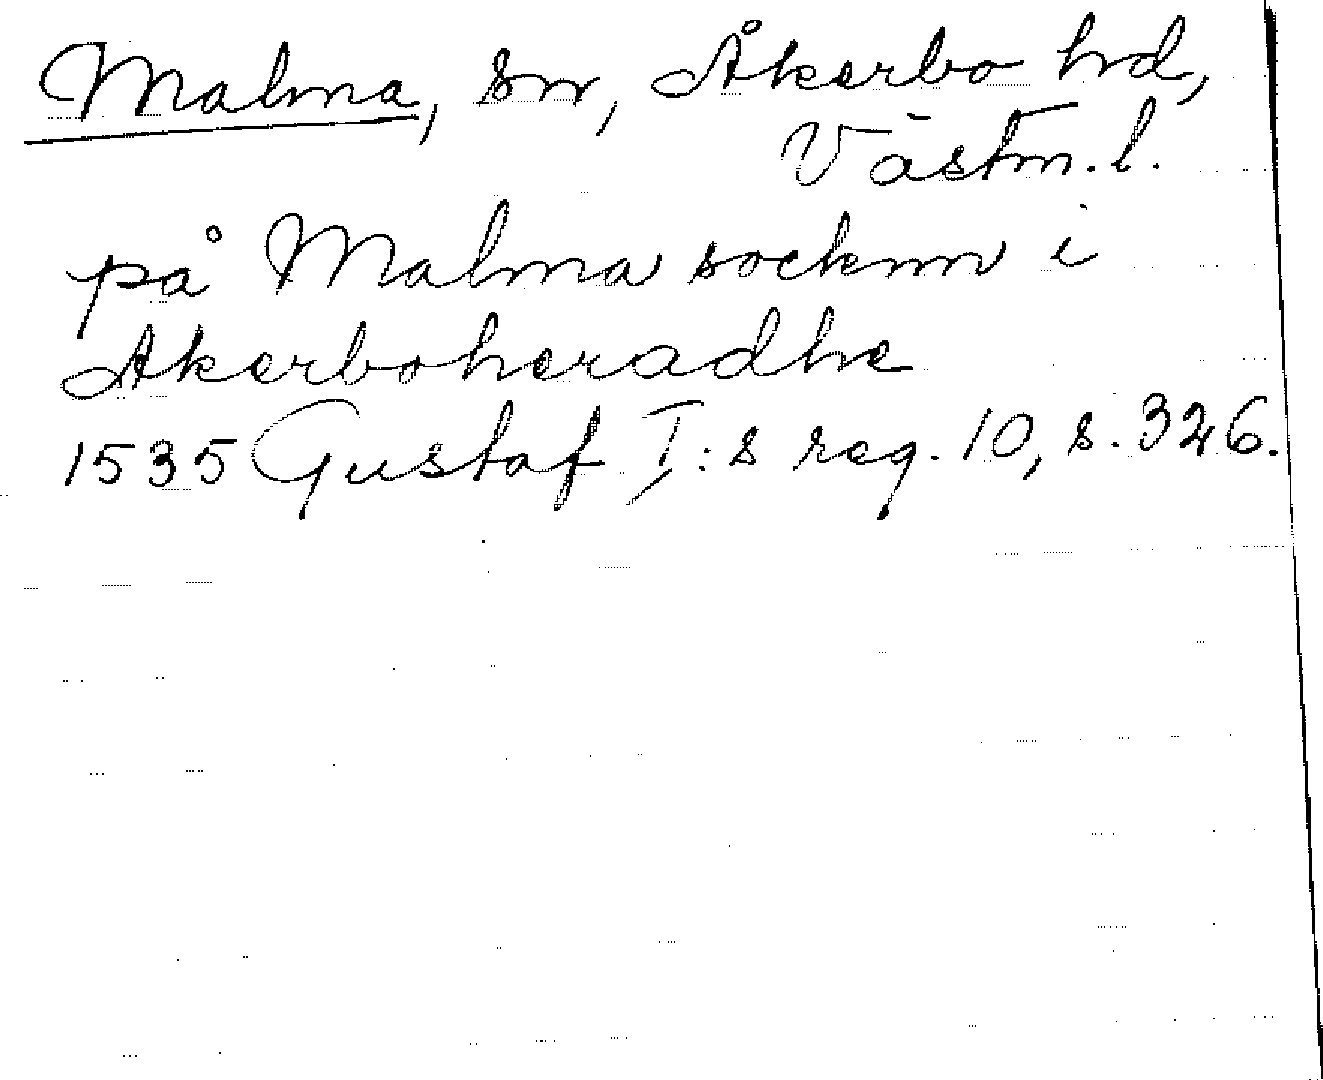 Malma, sn, Åkerbo hd,
Västm. l.
på Malma socknn i
Akerboheradhe
1535 Gustaf I:s reg. 10, s. 326.